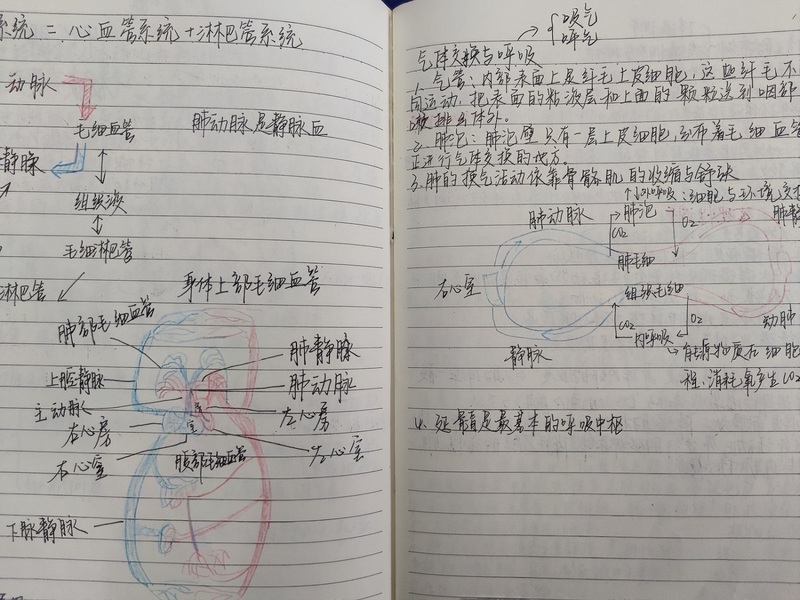 系统 = 心血管系统+淋巴管系统
动脉
毛细血管
肺动脉是静脉血
静脉
组织液
毛细淋巴管
淋巴管
身体上部毛细血管
肺部毛细血管
肺静脉
上腔静脉
肺动脉
主动脉
左心房
右心房
左心室
右心室
腹部毛细血管
下脉静脉
吸气
呼气
气体交换与呼吸
1. 气管:内部表面上是纤毛上皮细胞,这些纤毛不
向运动,把表面的粘液层和上面的颗粒送到咽部
排出体外。
2. 肺泡:肺泡壁只有一层上皮细胞,分布着毛细血管
正进行气体交换的地方。
3. 肺的换气活动依靠骨骼肌的收缩与舒张
外呼吸:细胞与环境交换
肺动脉
肺泡
肺静
CO2
O2
肺毛细
右心室
组织毛细
CO2
O2
内呼吸
动脉
静脉
能源物质在细胞
程、消耗氧产生CO2
4. 延髓是最基本的呼吸中枢